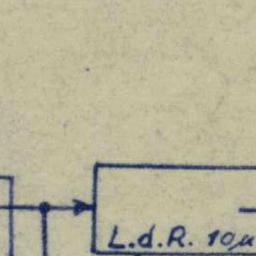 L.d.R. 10µ